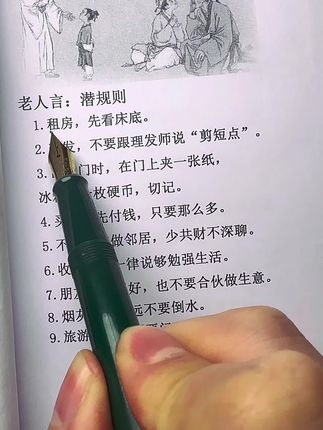 老人言：潜规则
1.租房，先看床底。
2.发，不要跟理发师说“剪短点”。
3.门时，在门上夹一张纸，
冰枚硬币，切记。
4.买先付钱，只要那么多。
5.不做邻居，少共财不深聊。
6.收一律说够勉强生活。
7.朋好，也不要合伙做生意。
8.烟灰远不要倒水。
9.旅游